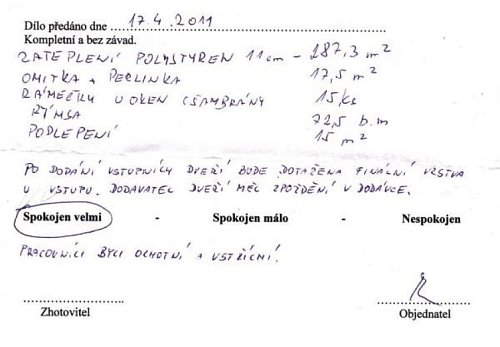 Dílo předáno dne 17.4.2011
Kompletní a bez závad.
ZATEPLENÍ POLYSTYREN 11cm - 287,3 m²
OMÍTKA + PERLINKA 17,5 m²
RÁMEČKY U OKEN (ŠAMBRÁNY 15 ks
ŘÍMSA 72,5 b.m
PODLEPENÍ 15 m²
PO DODÁNÍ VSTUPNÍCH DVEŘÍ BUDE DOTAŽENA FINÁLNÍ VRSTVA
U VSTUPU. DODAVATEL DVEŘÍ MĚL ZPOŽDĚNÍ V DODÁVCE.
Spokojen velmi - Spokojen málo - Nespokojen
PRACOVNÍCI BYLI OCHOTNÍ A VSTŘÍCNÍ.
Zhotovitel Objednatel